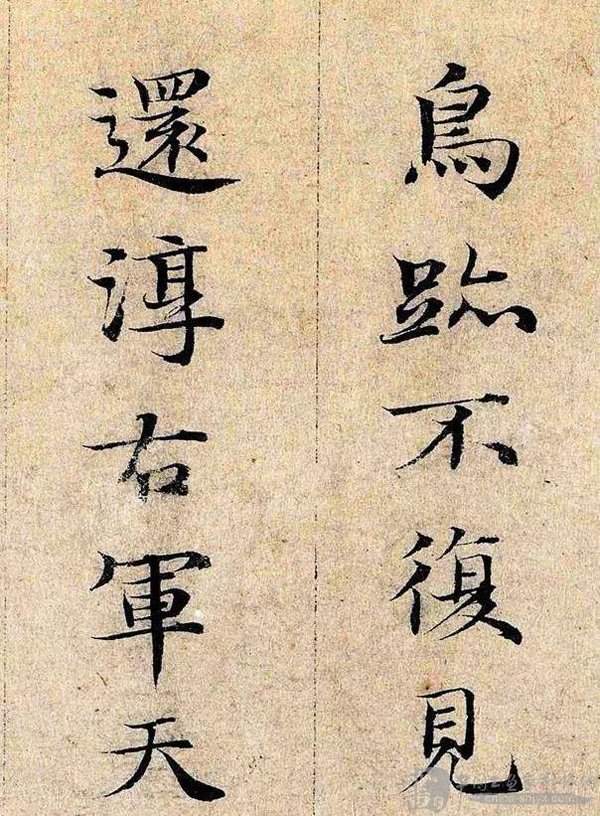 鳥跡不復見
還淳右軍天
china-shjyz.com